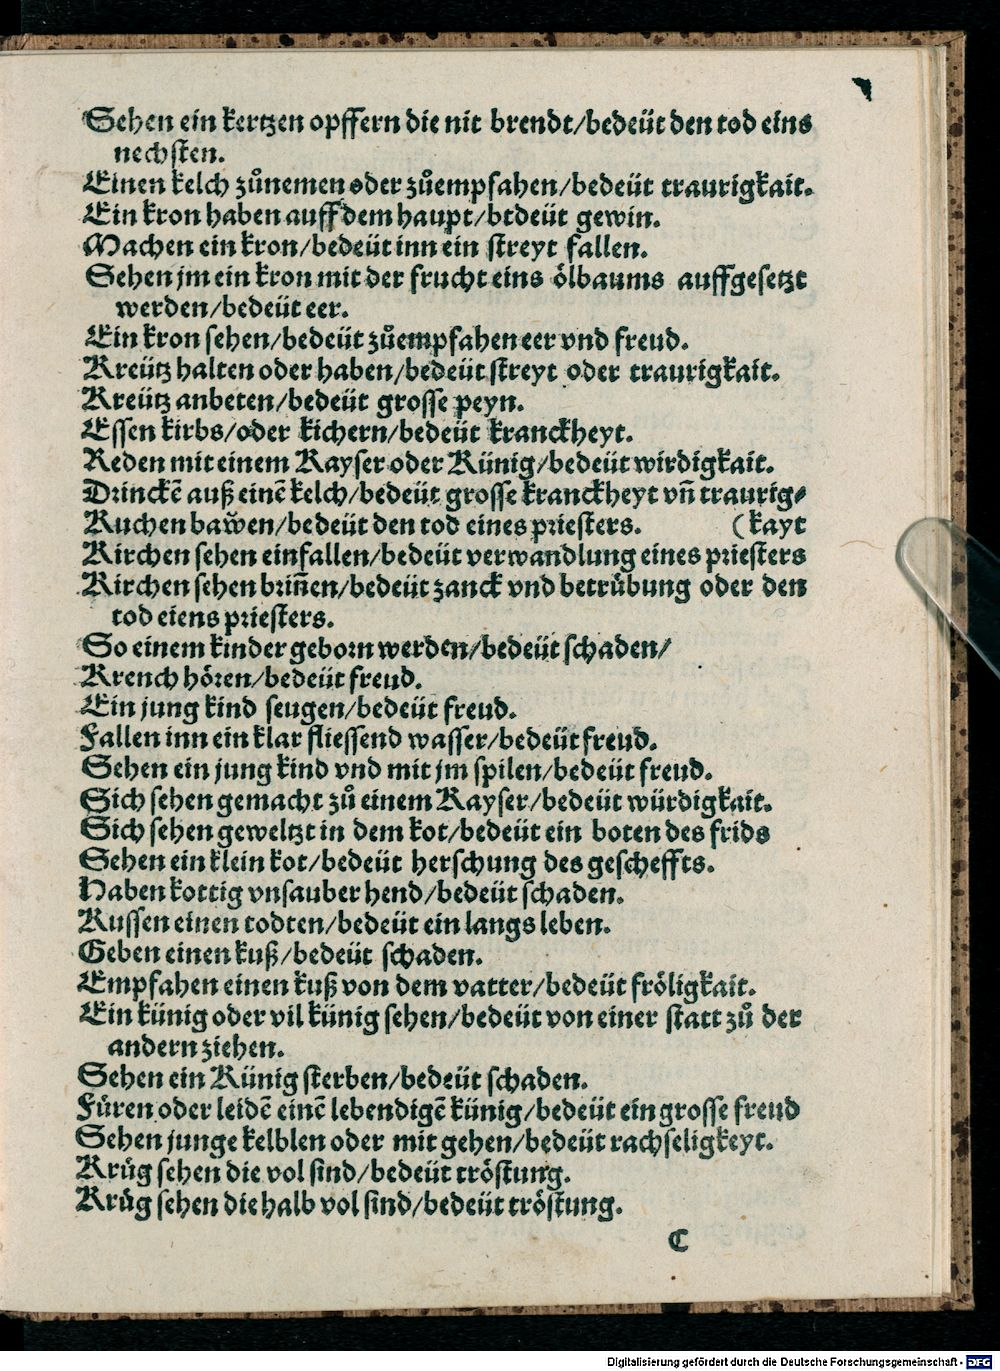 Sehen ein kertzen opffern die nit brendt/bedeüt den tod eins
nechsten.
Einen kelch zůnemen oder zůempfahen/bedeüt traurigkait.
Ein kron haben auff dem haupt/bedeüt gewin.
Machen ein kron/bedeüt inn ein streyt fallen.
Sehen jm ein kron mit der frucht eins ölbaums auffgesetzt
werden/bedeüt eer.
Ein kron sehen/bedeüt zůempfahen eer vnd freud.
Kreütz halten oder haben/bedeüt streyt oder traurigkait.
Kreütz anbeten/bedeüt grosse peyn.
Essen kirbs/oder kichern/bedeüt kranckheyt.
Reden mit einem Kayser oder Künig/bedeüt wirdigkait.
Drinckē auß einē kelch/bedeüt grosse kranckheyt vn̄ traurig-
Kuchen baẘen/bedeüt den tod eines priesters. (kayt
Kirchen sehen einfallen/bedeüt verwandlung eines priesters
Kirchen sehen brin̄en/bedeüt zanck vnd betrůbung oder den
tod eiens priesters.
So einem kinder geborn werden/bedeüt schaden/
Krench hören/bedeüt freud.
Ein jung kind seugen/bedeüt freud.
Fallen inn ein klar fliessend wasser/bedeüt freud.
Sehen ein jung kind vnd mit jm spilen/bedeüt freud.
Sich sehen gemacht zů einem Kayser/bedeüt würdigkait.
Sich sehen geweltzt in dem kot/bedeüt ein boten des frids
Sehen ein klein kot/bedeüt herschung des gescheffts.
Haben kottig vnsauber hend/bedeüt schaden.
Kussen einen todten/bedeüt ein langs leben.
Geben einen kuß/bedeüt schaden.
Empfahen einen kuß von dem vatter/bedeüt fröligkait.
Ein künig oder vil künig sehen/bedeüt von einer statt zů der
andern ziehen.
Sehen ein Künig sterben/bedeüt schaden.
Füren oder leidē einē lebendigē künig/bedeüt ein grosse freud
Sehen junge kelblen oder mit gehen/bedeüt rachseligkeyt.
Krůg sehen die vol sind/bedeüt tröstung.
Krůg sehen die halb vol sind/bedeüt tröstung.
C
Digitalisierung gefördert durch die Deutsche Forschungsgemeinschaft - DFG